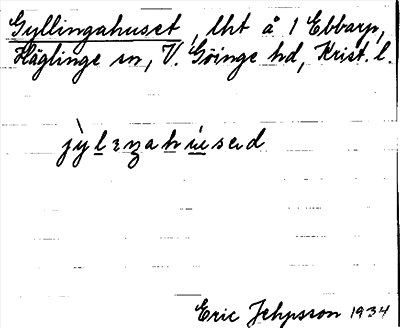 Gyllingahuset, lht å 1 Ebbarp,
Häglinge sn, V. Göinge hd, Krist. l.
Eric Jehpsson 1934